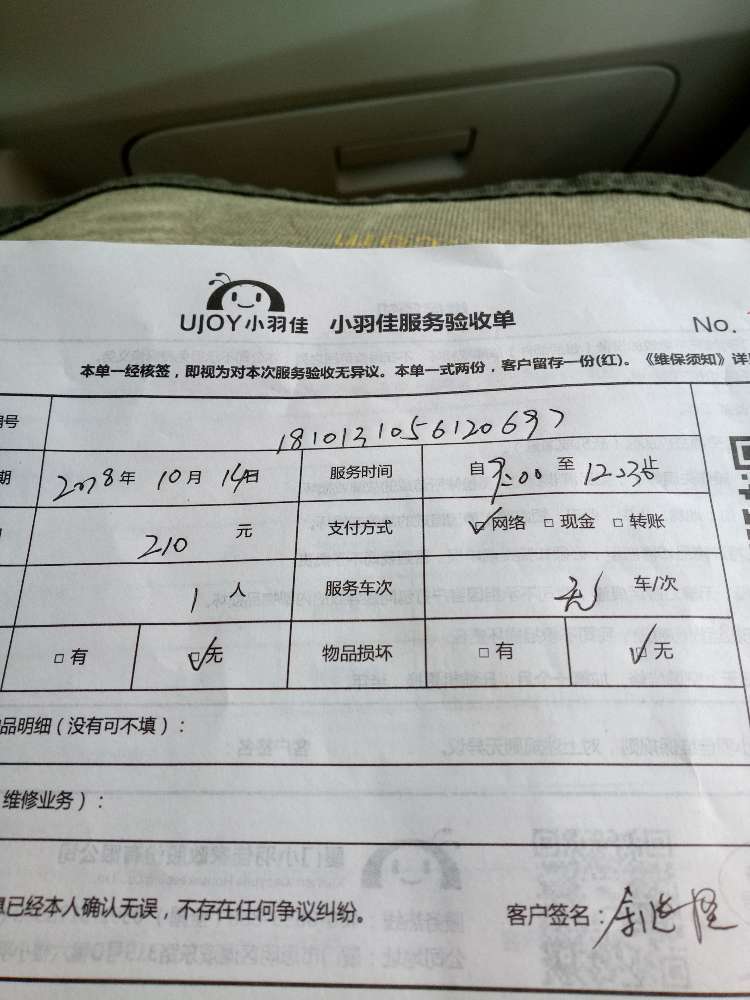 UJOY小羽佳 小羽佳服务验收单 No.
本单一经核签，即视为对本次服务验收无异议。本单一式两份，客户留存一份(红)。《维保须知》详
号 1810131056120697
期 2018年 10月 14日 服务时间 自 9:00 至 12:23止
210 元 支付方式 ☑网络 □现金 □转账
1 人 服务车次 无 车/次
□有 ☑无 物品损坏 □有 ☑无
品明细（没有可不填）：
维修业务）：
已经本人确认无误，不存在任何争议纠纷。 客户签名：